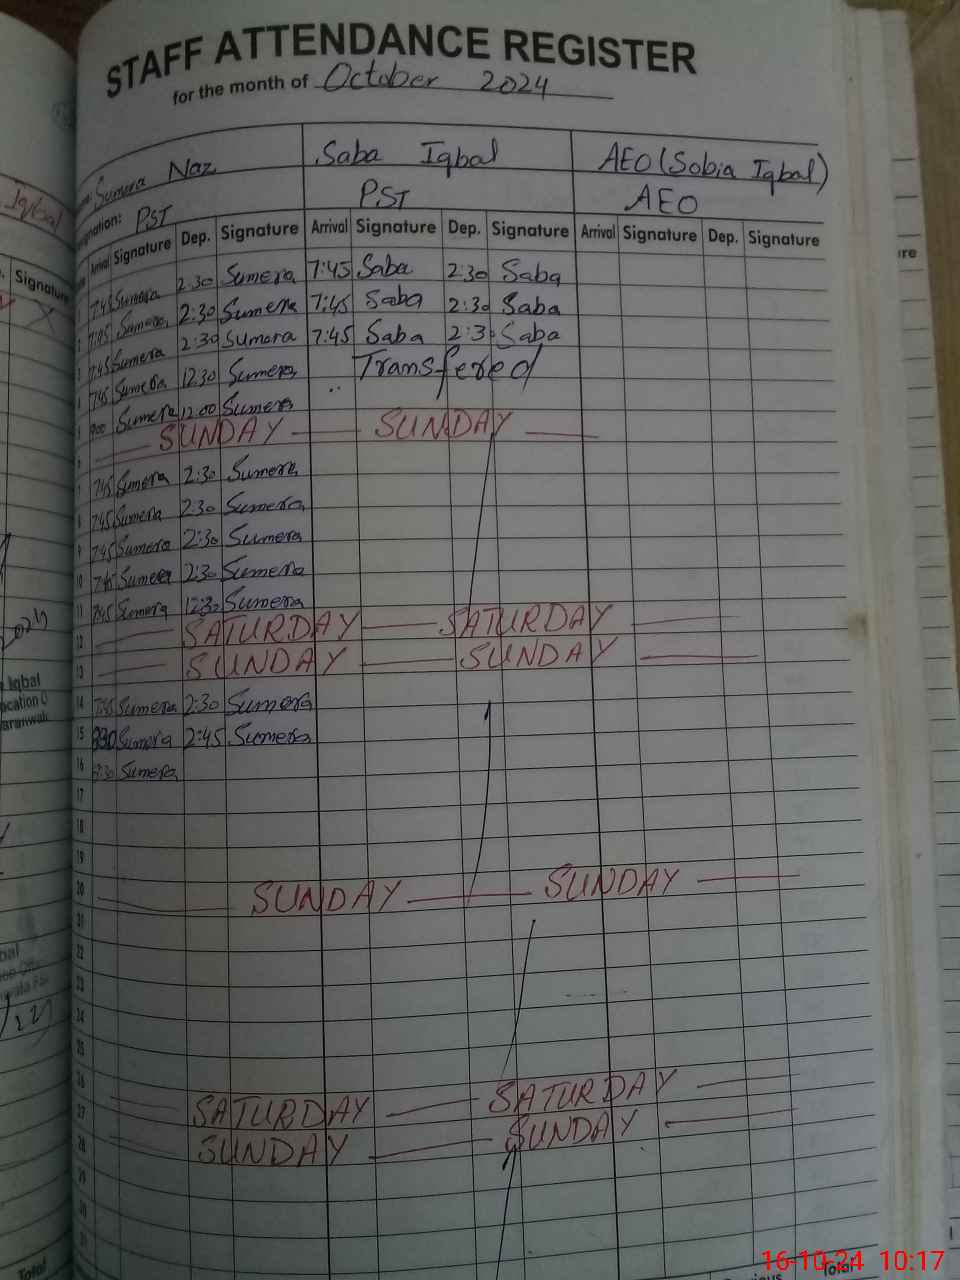 STAFF ATTENDANCE REGISTER
for the month of October 2024
Sumera Naz Saba Iqbal AEO (Sobia Iqbal)
PST PST AEO
Arrival Signature Dep. Signature Arrival Signature Dep. Signature Arrival Signature Dep. Signature
1 7:45 Sumera 2:30 Sumera 7:45 Saba 2:30 Saba
2 7:45 Sumera 2:30 Sumera 7:45 Saba 2:30 Saba
3 7:45 Sumera 2:30 Sumera 7:45 Saba 2:30 Saba
4 7:45 Sumera 12:30 Sumera Transfered
5 900 Sumera 12:00 Sumera
6 SUNDAY SUNDAY
7 7:45 Sumera 2:30 Sumera
8 7:45 Sumera 2:30 Sumera
9 7:45 Sumera 2:30 Sumera
10 7:45 Sumera 2:30 Sumera
11 7:45 Sumera 12:30 Sumera
12 SATURDAY SATURDAY
13 SUNDAY SUNDAY
14 7:45 Sumera 2:30 Sumera
15 Sumera 2:45 Sumera
16 Sumera
17
18
19
20 SUNDAY SUNDAY
21
22
23
24
25
26 SATURDAY SATURDAY
27 SUNDAY SUNDAY
28
29
30
31
Total
16-10-24 10:17
Iqbal
Signature
Iqbal
Total